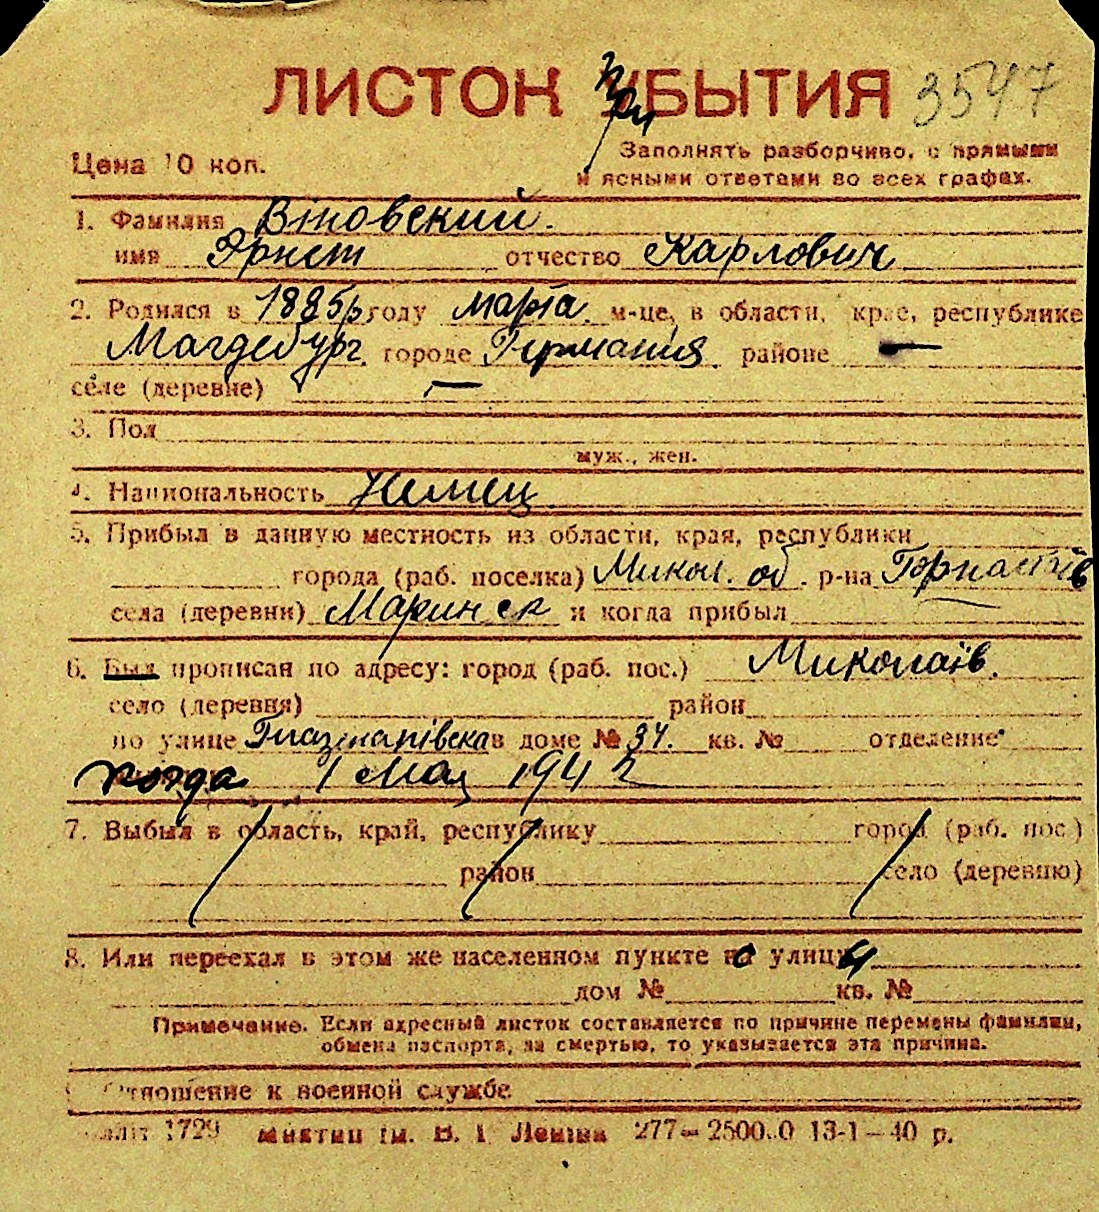 ЛИСТОК УБЫТИЯ 3547
при
Цена 10 коп.
Заполнять разборчиво, с прямыми
и ясными ответами во всех графах.
1. Фамилия Витовский.
имя Эрнст отчество Карлович
2. Родился в 1885 р. году марта м-це, в области, крае, республике
Магдебург городе Германия районе —
селе (деревне) —
3. Пол
муж., жен.
4. Национальность Немец
5. Прибыл в данную местность из области, края, республики
города (раб. поселка) Микол. об. р-на
села (деревни) и когда прибыл
6. Был прописан по адресу: город (раб. пос.) Миколаїв.
село (деревня) район
по улице в доме № 34. кв. № отделение
когда 1 Мая 1942
7. Выбыл в область, край, республику город (раб. пос.)
район село (деревню)
8. Или переехал в этом же населенном пункте с улицы
дом № кв. №
Примечание. Если адресный листок составляется по причине перемены фамилии,
обмена паспорта, за смертью, то указывается эта причина.
Отношение к военной службе
1729 Ленина 277— 13-1—40 р.